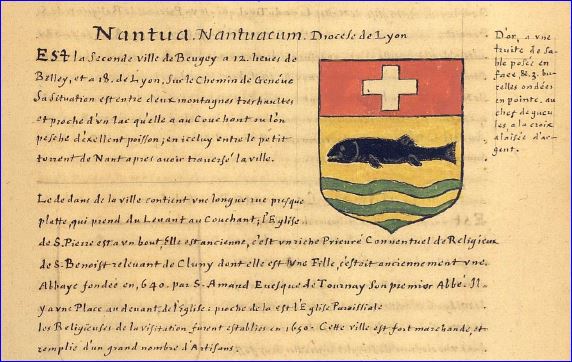 Nantua. Nantuacum. Diocèse de Lyon
Est la Seconde ville de Beugey a 12. lieues de
Belley, et a 18. de Lyon, Sur le Chemin de Genéue
Sa situation est entre deux montagnes tres haultes
et proche d'vn lac qu'elle a au Couchant ou l'on
pesche d'exellent poisson; en iceluy entre le petit
torrent de Nant apres avoir traversé la ville.
Le dedans de la ville contient vne longue rue presque
platte, qui prend du Leuant au Couchant; l'Eglise
de S. Pierre est a vn bout, Elle est ancienne, c'est vn riche Prieuré Conuentuel de Religieux
de S. Benoist releuant de Cluny dont elle est Vne Fille, c'estoit anciennement vne
Abbaye fondée en, 640. par S. Amand Euesque de Tournay Son premier Abbé. Il
y a vne Place au deuant de l'Eglise: proche de la est l'Eglise Paroissiale
les Religieuses de la visitation furent establies en 1650. Cette ville est fort marchande, et
remplie d'un grand nombre d'Artisans.
D'or, a vne
truite de sa-
ble posée en
face, & 3. bu-
relles ondées
en pointe, au
chef de gueu-
les, a la croix
alaisée d'ar-
gent.